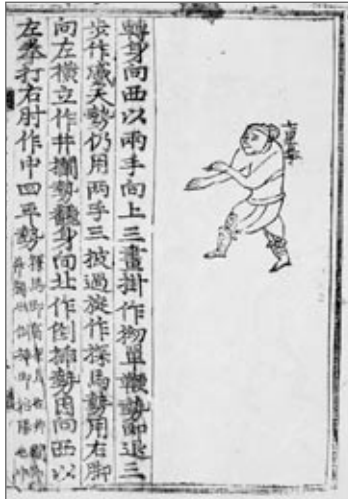 轉身向西以兩手向上三畫掛作拗單鞭勢即退三
步作盛天勢仍用两手三披過旋作探馬勢用右脚
向左横立作井攔勢飜身向北作倒揷勢因向西以
左拳打右肘作中四平勢